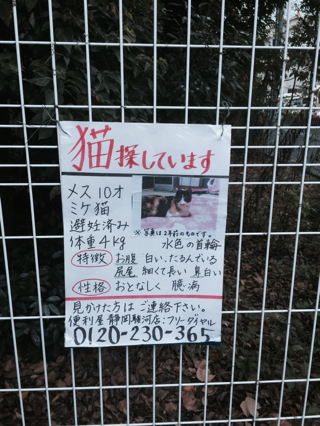 猫探しています
メス 10才
ミケ猫
避妊済み
体重4kg
※写真は2年前のものです。
水色の首輪
特徴 お腹 白い、たるんでいる
尻尾 細くて長い 真白い
性格 おとなしく 臆病
見かけた方は ご連絡下さい。
便利屋 静岡駿河店:フリーダイヤル
0120-230-365